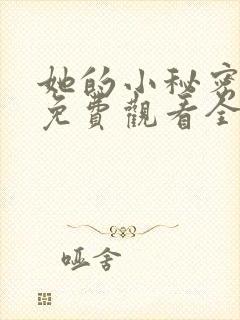 她的小秘密
免費觀看全
哑舍